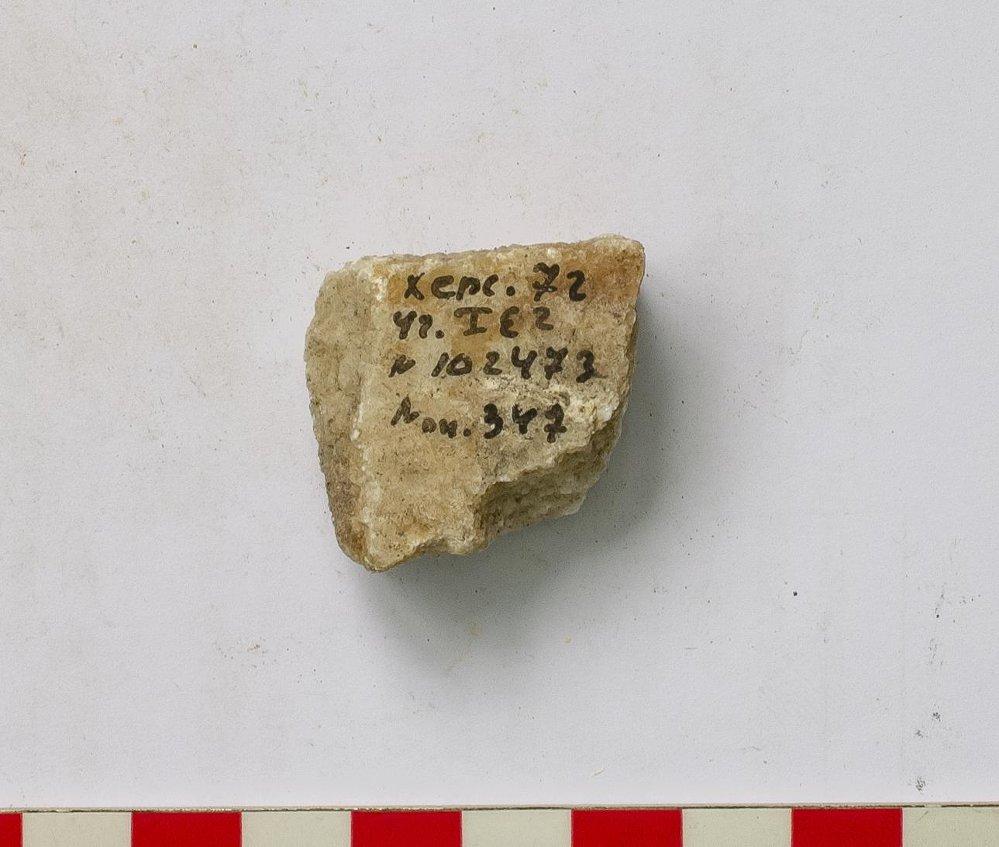 Херс. 72
уч. IE2
N 102473
Nоп. 347